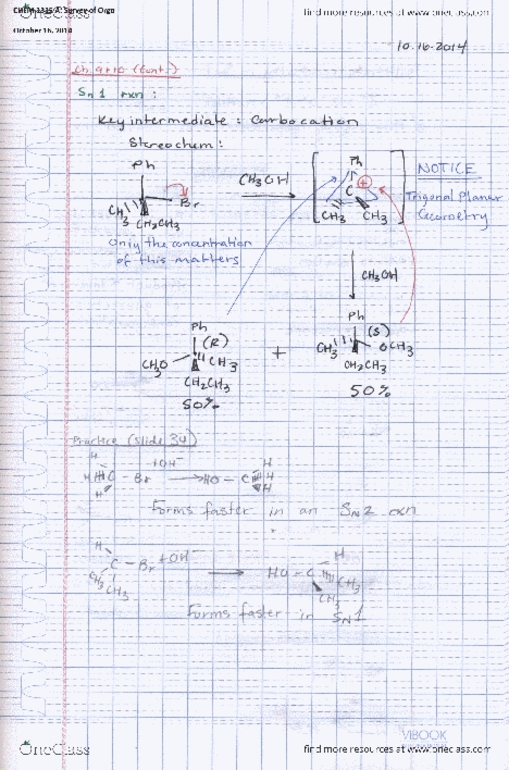 CHEM 2325 A: Survey of Orgo
find more resources at www.oneclass.com
October 16, 2014
10-16-2014
Ch 9+10 (cont.)
SN1 rxn:
Key intermediate : Carbocation
Stereochem:
Ph
Br
CH3
CH2CH3
Only the concentration
of this matters
CH3OH
Ph
C
+
CH3 CH3
NOTICE
Trigonal Planar
Geometry
CH3OH
Ph
(R)
CH3O
CH3
CH2CH3
50%
+
Ph
(S)
CH3
OCH3
CH2CH3
50%
Practice (Slide 34)
H
H C - Br
H
+OH-
HO - C H
H
H
Forms faster in an SN2 rxn
H
C - Br +OH-
CH3
CH3
HO - C
H
CH3
CH3
Forms faster in SN1
VIBOOK
OneClass
find more resources at www.oneclass.com